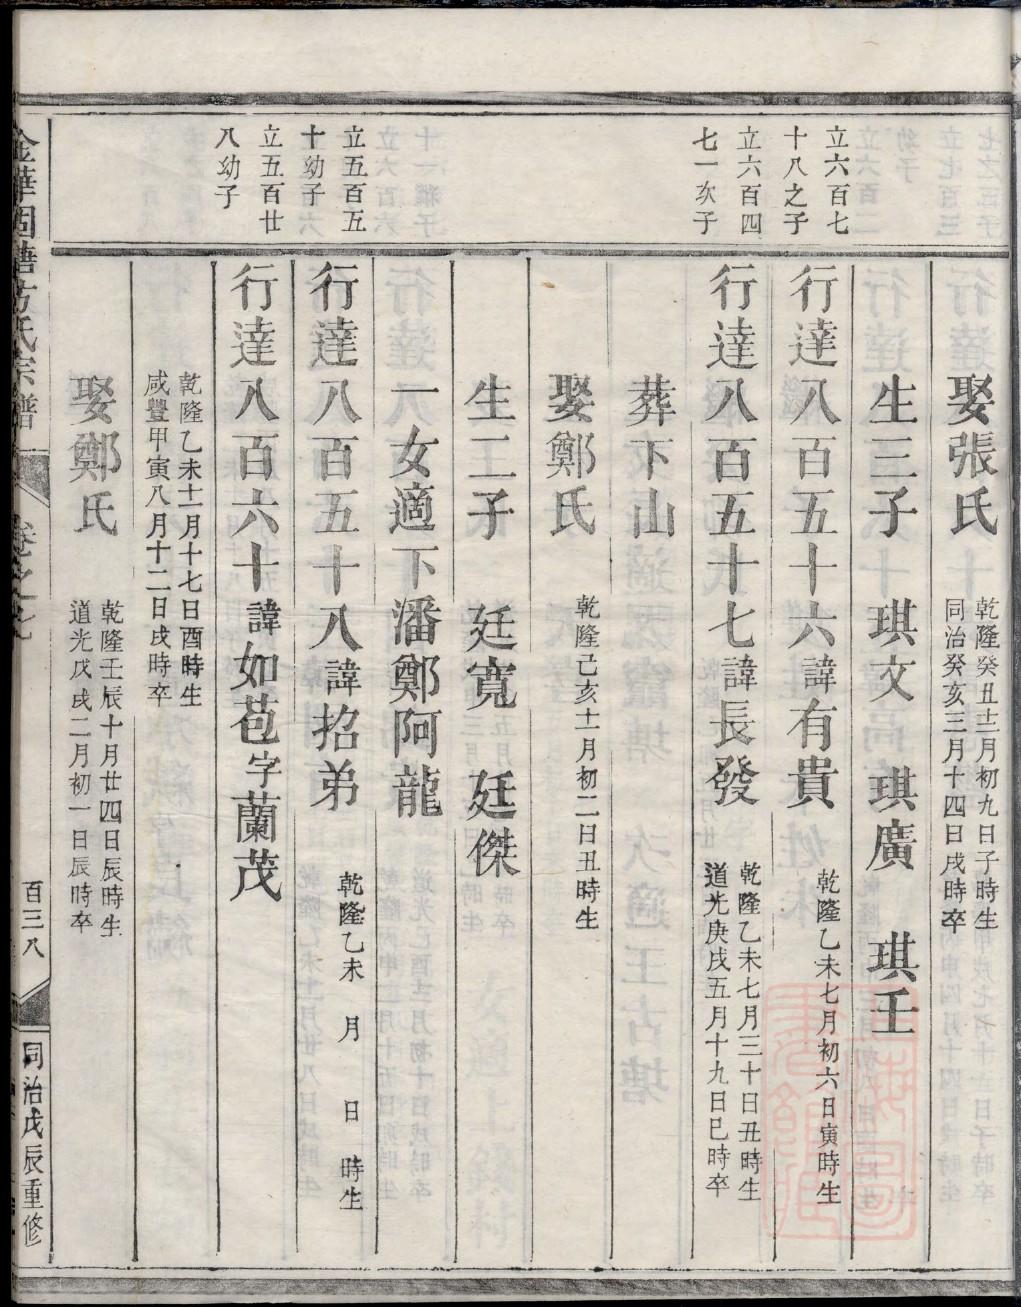 娶張氏
乾隆癸丑十二月初九日子時生
同治癸亥三月十四日戌時卒
生三子 琪文 琪廣 琪玉
立六百七
十八之子
行達八百五十六諱有貴
乾隆乙未七月初六日寅時生
立六百四
七一次子
行達八百五十七諱長發
乾隆乙未七月三十日丑時生
道光庚戌五月十九日巳時卒
葬下山
娶鄭氏
乾隆己亥十一月初二日丑時生
生二子 廷寬 廷傑
一女適下潘鄭阿龍
立五百五
十幼子
行達八百五十八諱招弟
乾隆乙未 月 日 時生
立五百廿
八幼子
行達八百六十諱如苞字蘭茂
乾隆乙未十一月十七日酉時生
咸豐甲寅八月十二日戌時卒
娶鄭氏
乾隆壬辰十月廿四日辰時生
道光戊戌二月初一日辰時卒
方氏宗譜
卷之
百三八
同治戊辰重修